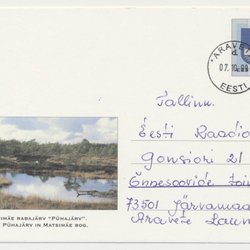 ARAVE
07.10.99
EESTI
Tallinn.
Eesti Raadio
Gonsiori 21
Õnnesoovide
73501 Järvamaa
Aravete
MÄE RABAJÄRV "PÜHAJÄRV".
PÜHAJÄRV IN MATSIMÄE BOG.